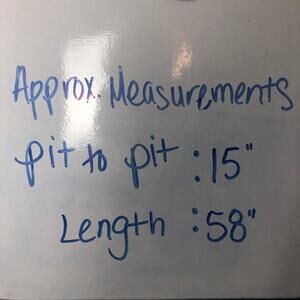 Approx. Measurements
pit to pit : 15"
Length : 58"